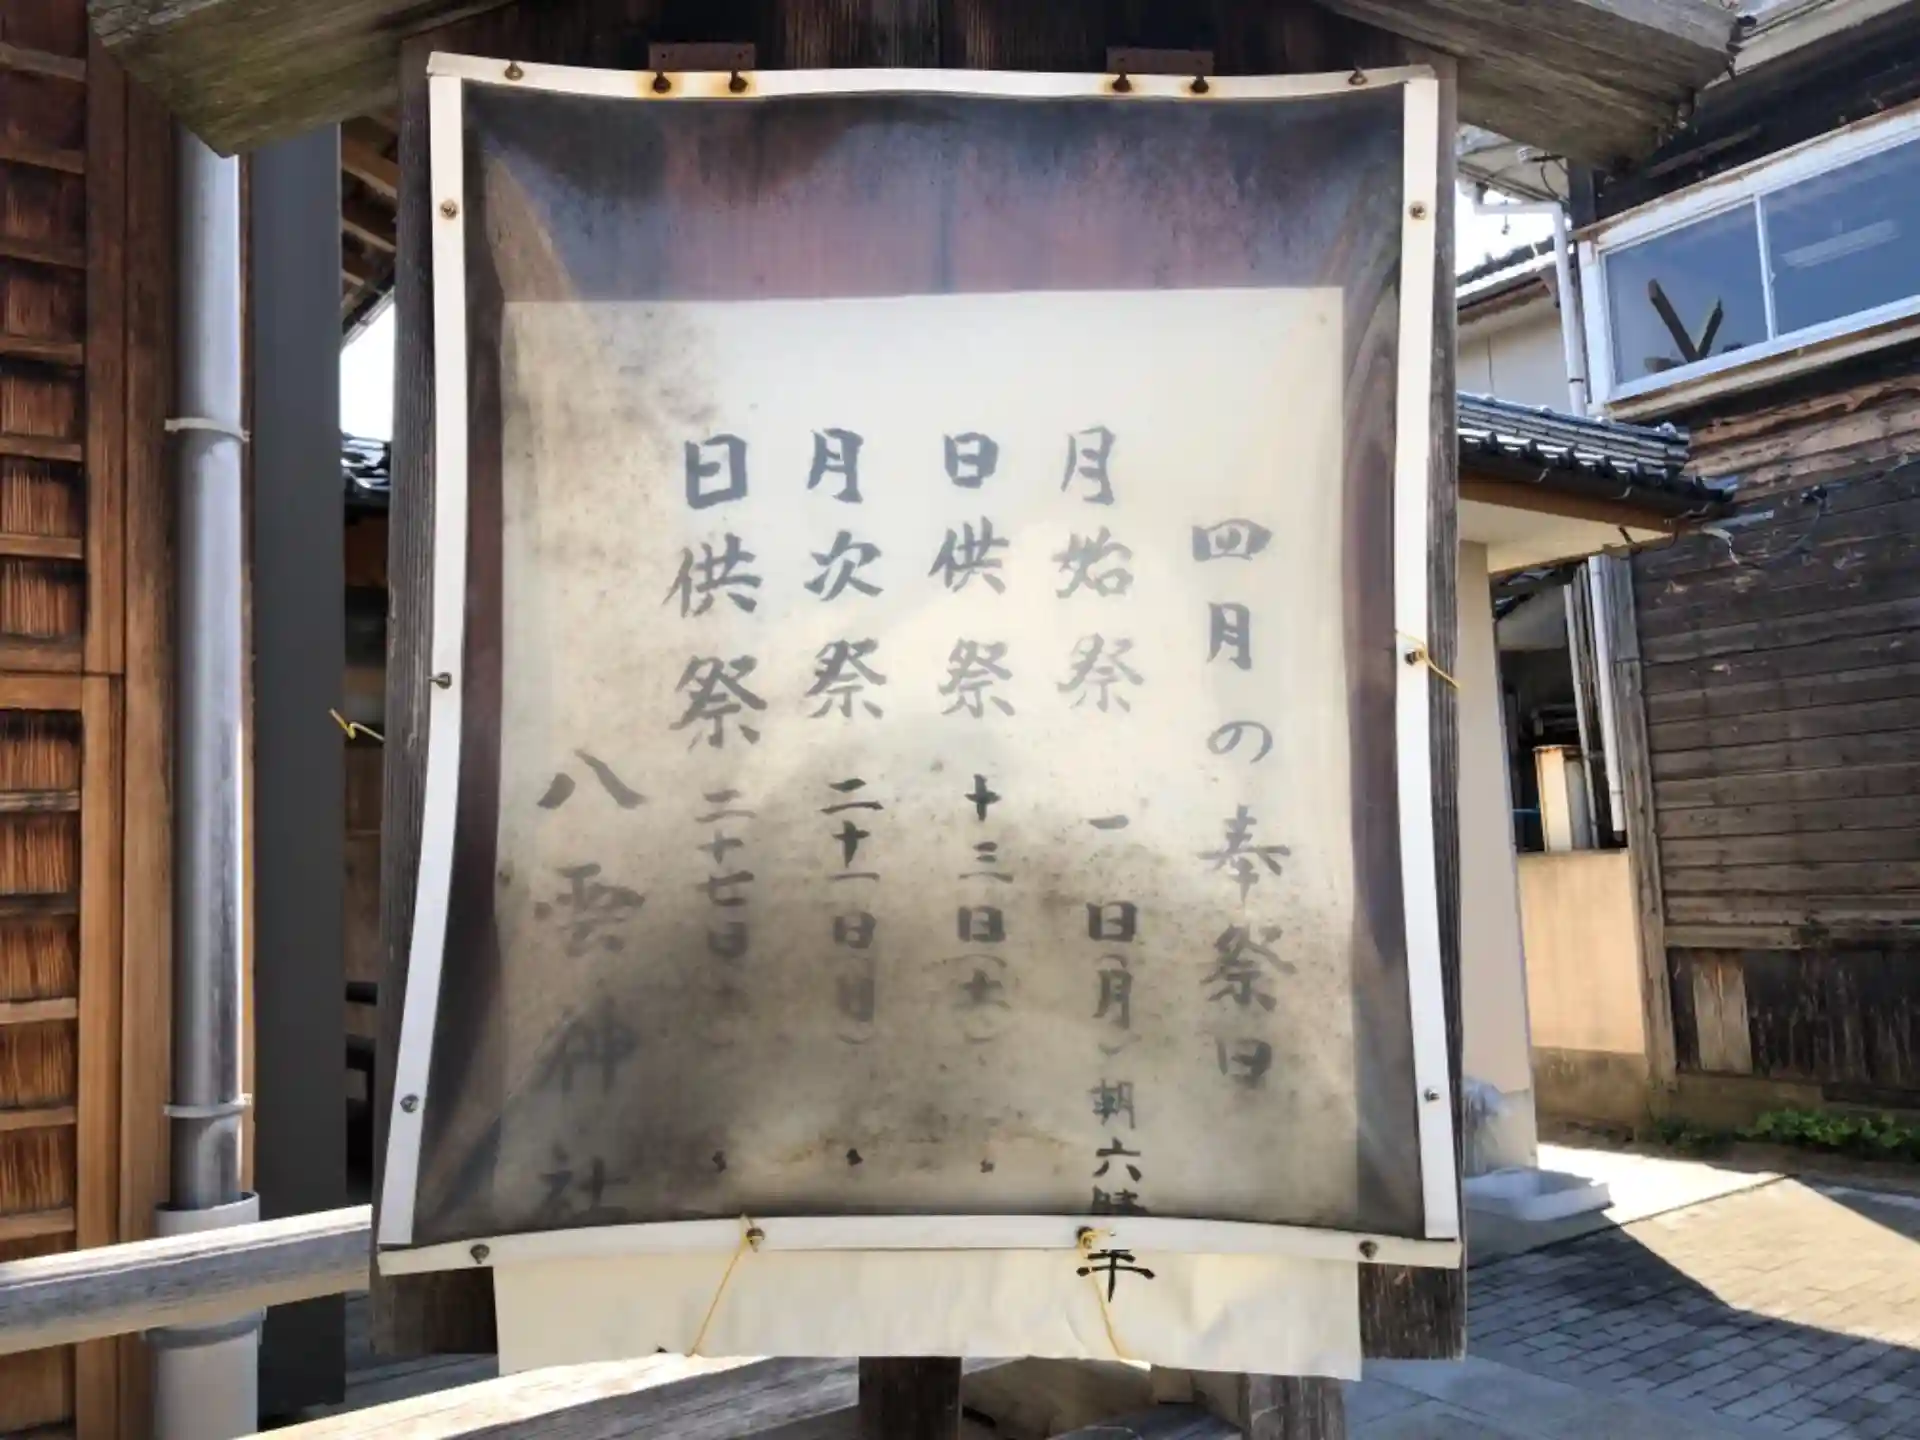 四月の奉祭日
月始祭 一日(月)朝六時半
日供祭 十三日(土)〃
月次祭 二十一日(日)〃
日供祭 二十七日
八雲神社